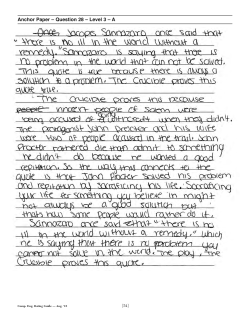 Anchor Paper – Question 28 – Level 3 – A
Jacopo Sannazaro once said that
"There is no ill in the world without a
remedy." Sannazaro is saying that there is
no problem in the world that can not be solved.
This quote is true because there is always a
solution to a problem. The Crucible proves this
quote true.
The Crucible proves this
innocent people of Salem were
being accused of witchcraft when they didn't.
The protagonist John Proctor and his wife
were two of people accused in the trial. John
Proctor rathered die than admit to something
he didn't do because he wanted a good
reputation. So the way this connects to the
quote is that John Proctor solved his problem
and reputation by sacraficing his life. Sacraficing
your life for something you believe in might
not always be a good solution but
thats how some people would rather do it.
Sannazaro once said that "there is no
ill in the world without a remedy." which
he is saying that there is no problem you
can not solve in the world. The play, The
Crucible proves this quote.
[24]